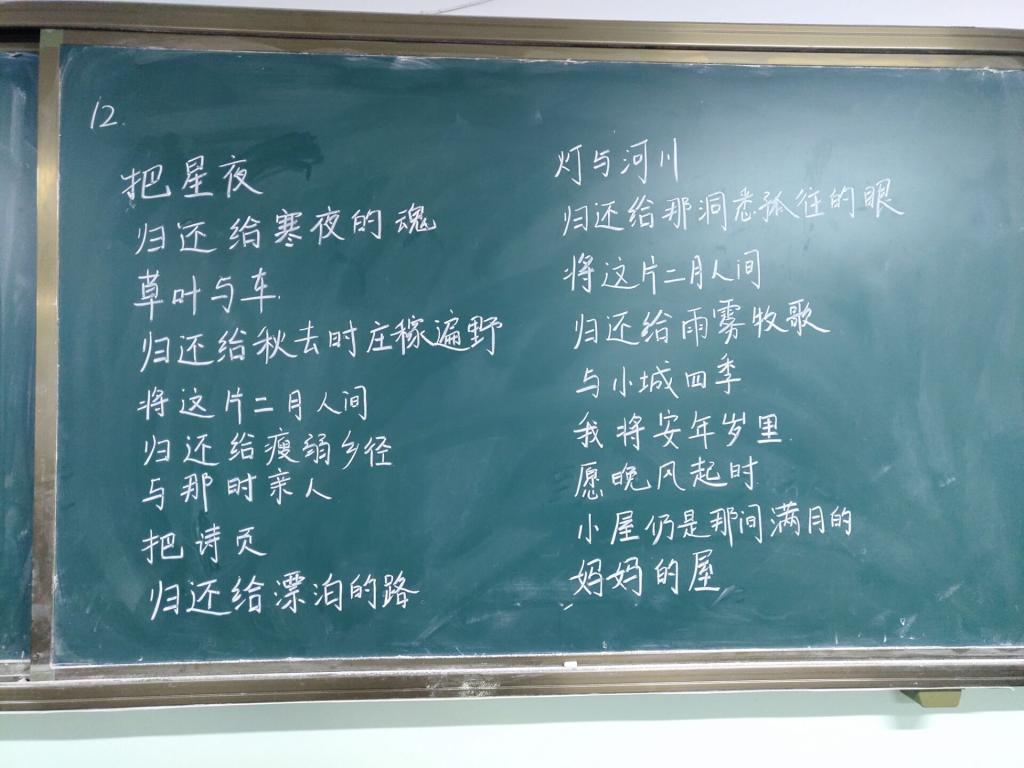 12.
把星夜
归还给寒夜的魂
草叶与车
归还给秋去时庄稼遍野
将这片二月人间
归还给瘦弱乡径
与那时亲人
把诗页
归还给漂泊的路
灯与河川
归还给那洞悉孤往的眼
将这片二月人间
归还给雨雾牧歌
与小城四季
我将安年岁里
愿晚风起时
小屋仍是那间满月的
妈妈的屋